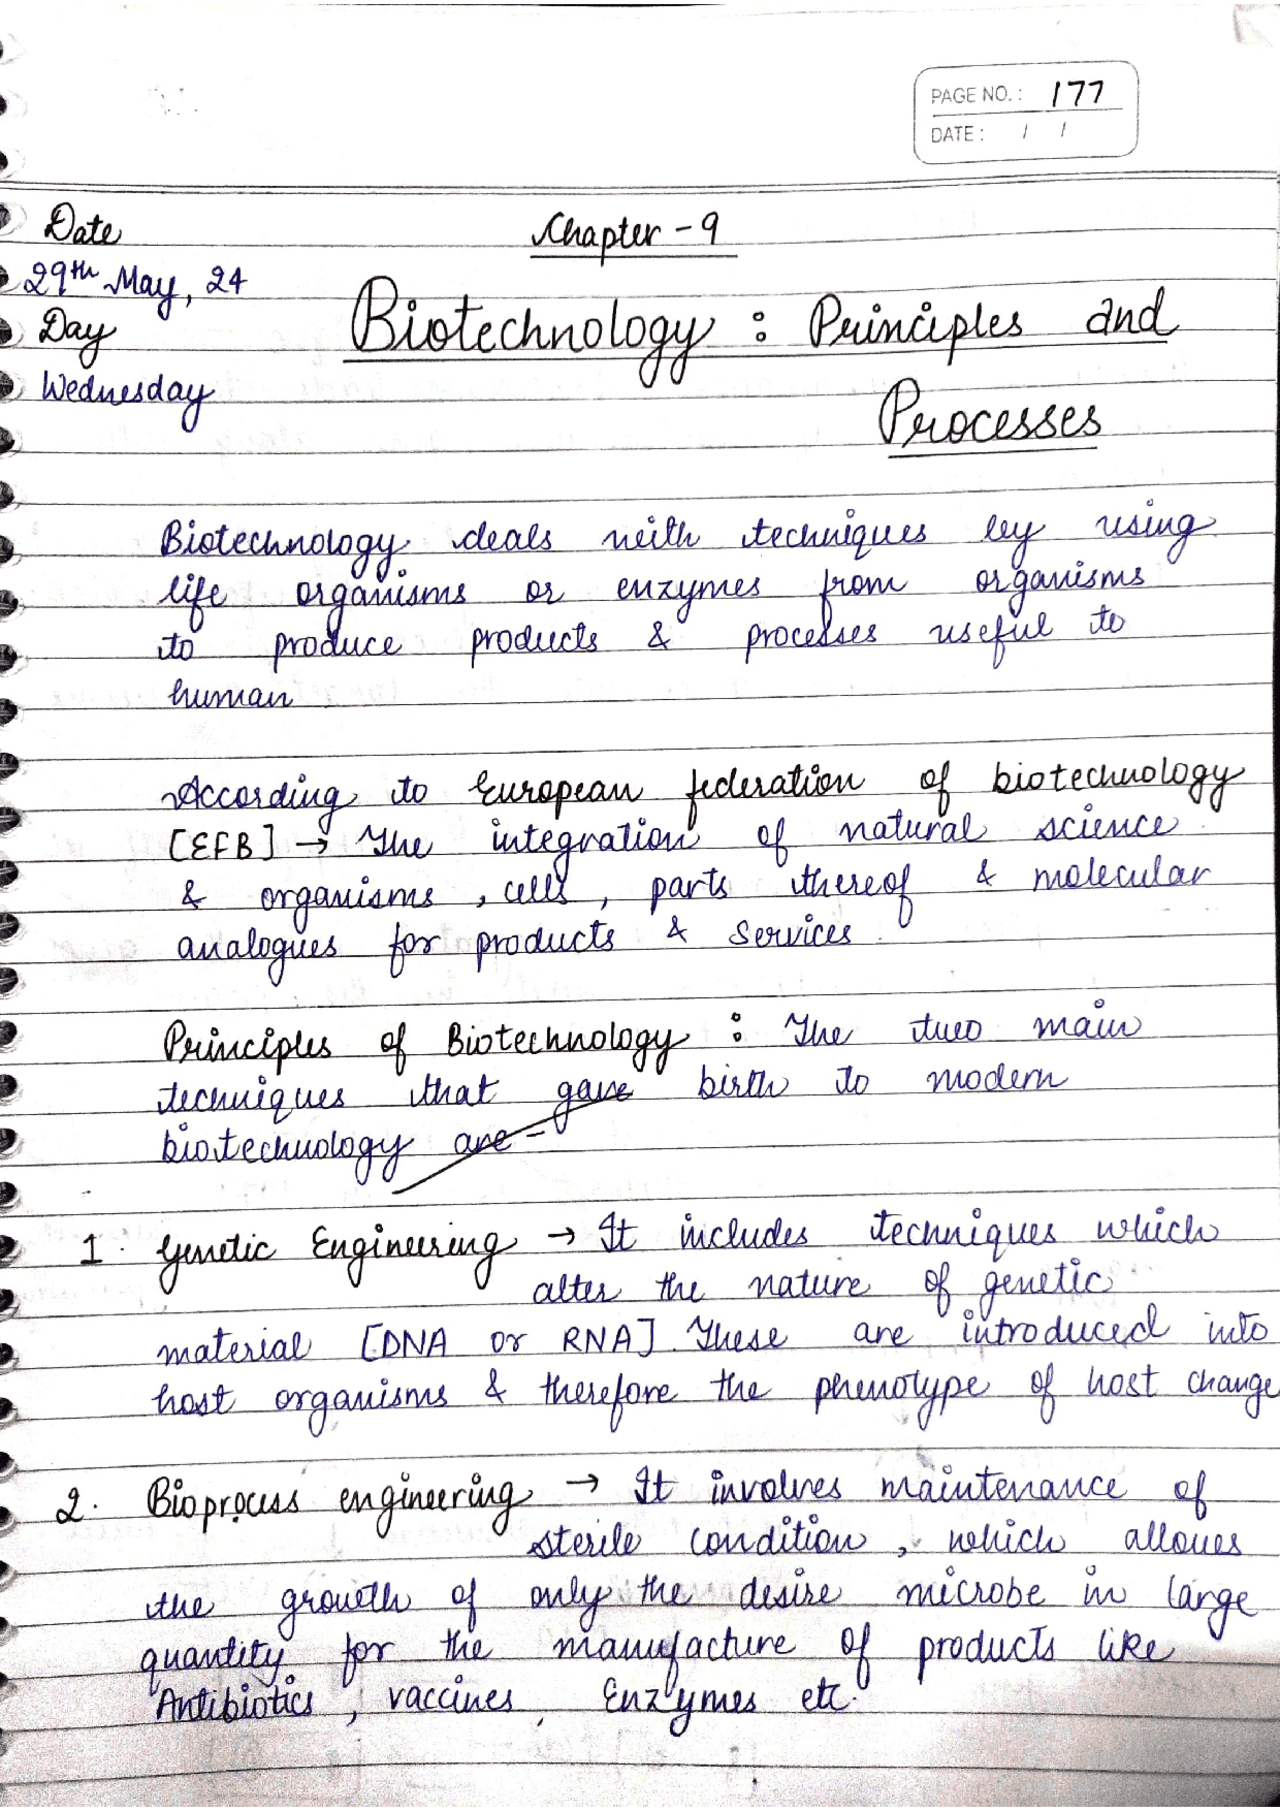 PAGE NO.: 177
DATE: / /
Date
Chapter - 9
29th May, 24
Day
Biotechnology : Principles and
Wednesday
Processes
Biotechnology deals with techniques by using
life organisms or enzymes from organisms
to produce products & processes useful to
human.
According to European federation of biotechnology
[EFB] → The integration of natural science
& organisms, cells, parts thereof & molecular
analogues for products & services.
Principles of Biotechnology : The two main
techniques that gave birth to modern
biotechnology are -
1. Genetic Engineering → It includes techniques which
alter the nature of genetic
material [DNA or RNA]. These are introduced into
host organisms & therefore the phenotype of host change
2. Bioprocess engineering → It involves maintenance of
sterile condition, which allows
the growth of only the desire microbe in large
quantity for the manufacture of products like
Antibiotics, vaccines, Enzymes etc.